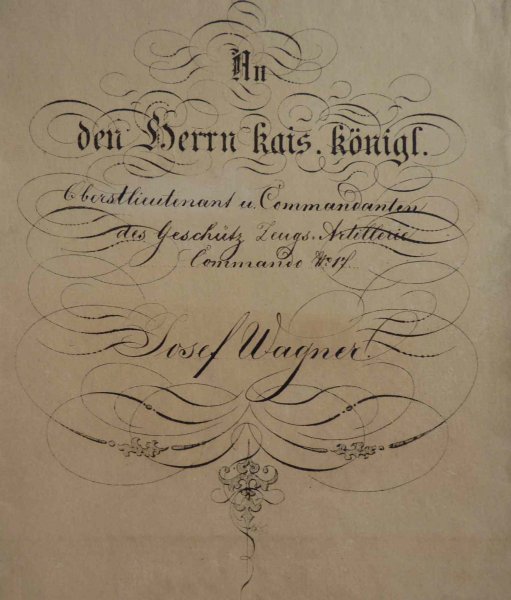 An
den Herrn kais. königl.
Oberstlieutenant u. Commandanten
des Geschütz Zeugs-Artillerie
Commando No 17.
Josef Wagner!